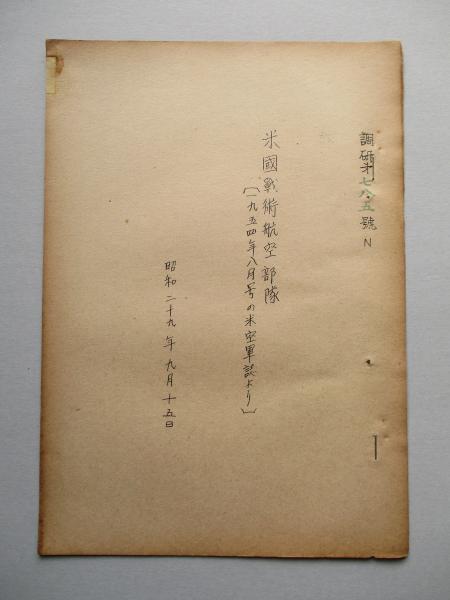 調研才七八五號 N
米國戰術航空部隊
〔一九五四年八月号の米空軍誌より〕
昭和二十九年九月十五日